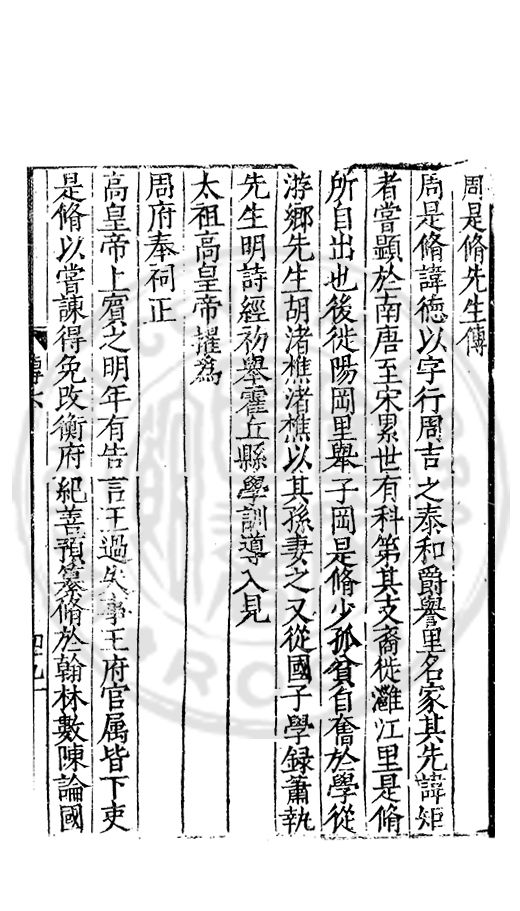 周是脩先生傳
周是脩諱德以字行周吉之泰和爵譽里名家其先諱矩
者嘗顯於南唐至宋累世有科第其支裔徙灘江里是脩
所自出也後徙陽岡里舉子岡是脩少孤貧自奮於學從
游鄉先生胡渚樵渚樵以其孫妻之又從國子學録蕭執
先生明詩經初舉霍丘縣學訓導入見
太祖高皇帝擢爲
周府奉祠正
高皇帝上賓之明年有告言王過失事王府官属皆下吏
是脩以嘗諫得免改衡府紀善預纂脩於翰林數陳論國